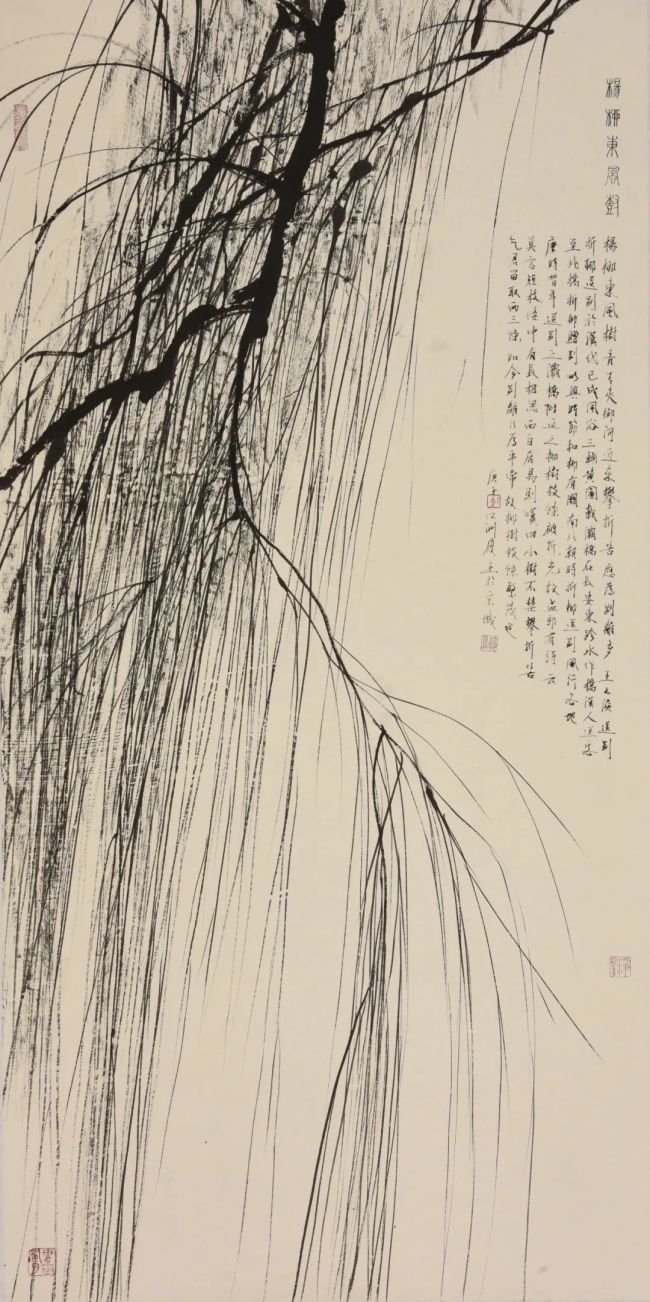 楊柳東風樹
楊柳東風樹青青夾御河近來攀折苦應為別離多 王之渙送別
折柳送別於漢代已成風俗三輔黃圖載灞橋在長安東跨水作橋漢人送客
至此橋折柳贈別此與時節和柳有關南北朝時折柳送別風行各地
唐時昔年送別之灞橋附近之柳樹枝條被折光故孟郊有詩云
莫言短枝條中有長相思而白居易則嘆曰小樹不禁攀折苦
乞君留取兩三條如今別離乃為平常故柳樹枝條繁茂也
庚子 江洲 於京城